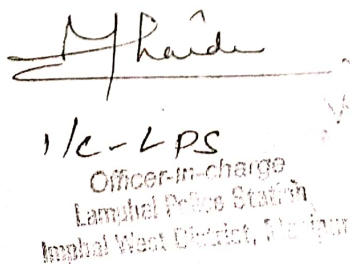 I/C-LPS
Officer-in-charge
Lamphel Police Station
Imphal West District, Manipur